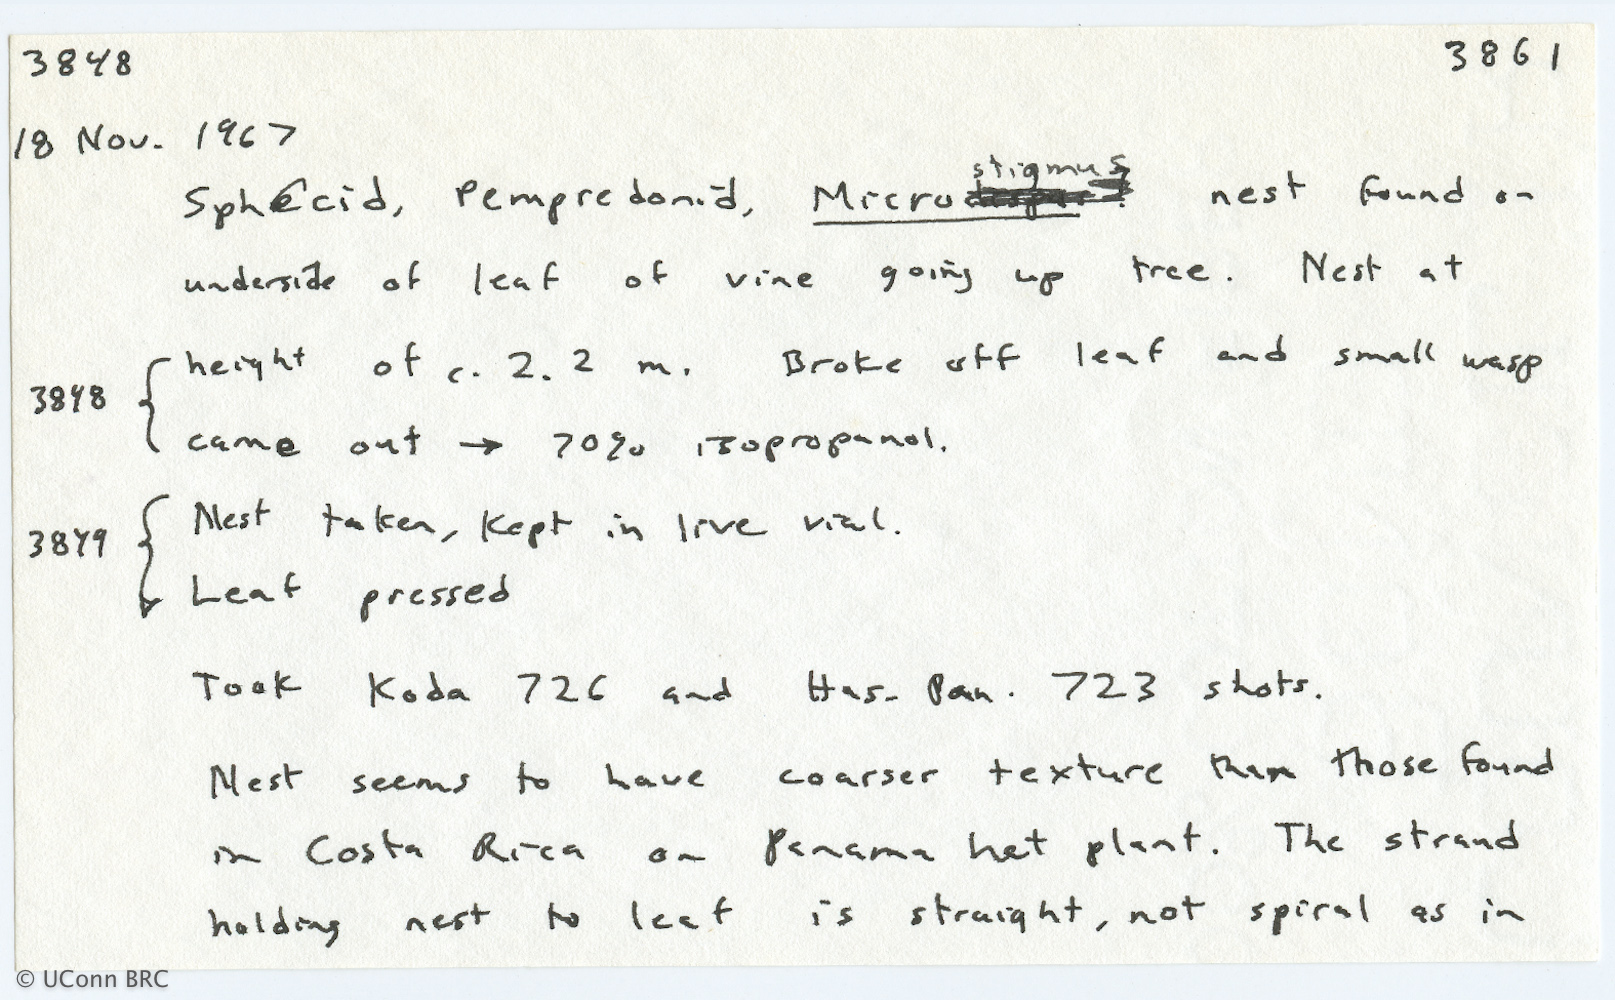 3848 3861
18 Nov. 1967
stigmus
Sphecid, Pempredonid, Micro nest found on
underside of leaf of vine going up tree. Nest at
height of c. 2.2 m. Broke off leaf and small wasp
3848
came out → 70% isopropanol.
Nest taken, Kept in live vial.
3849
Leaf pressed
Took Koda 726 and Has. Pan. 723 shots.
Nest seems to have coarser texture than those found
in Costa Rica on Panama hat plant. The strand
holding nest to leaf is straight, not spiral as in
© UConn BRC